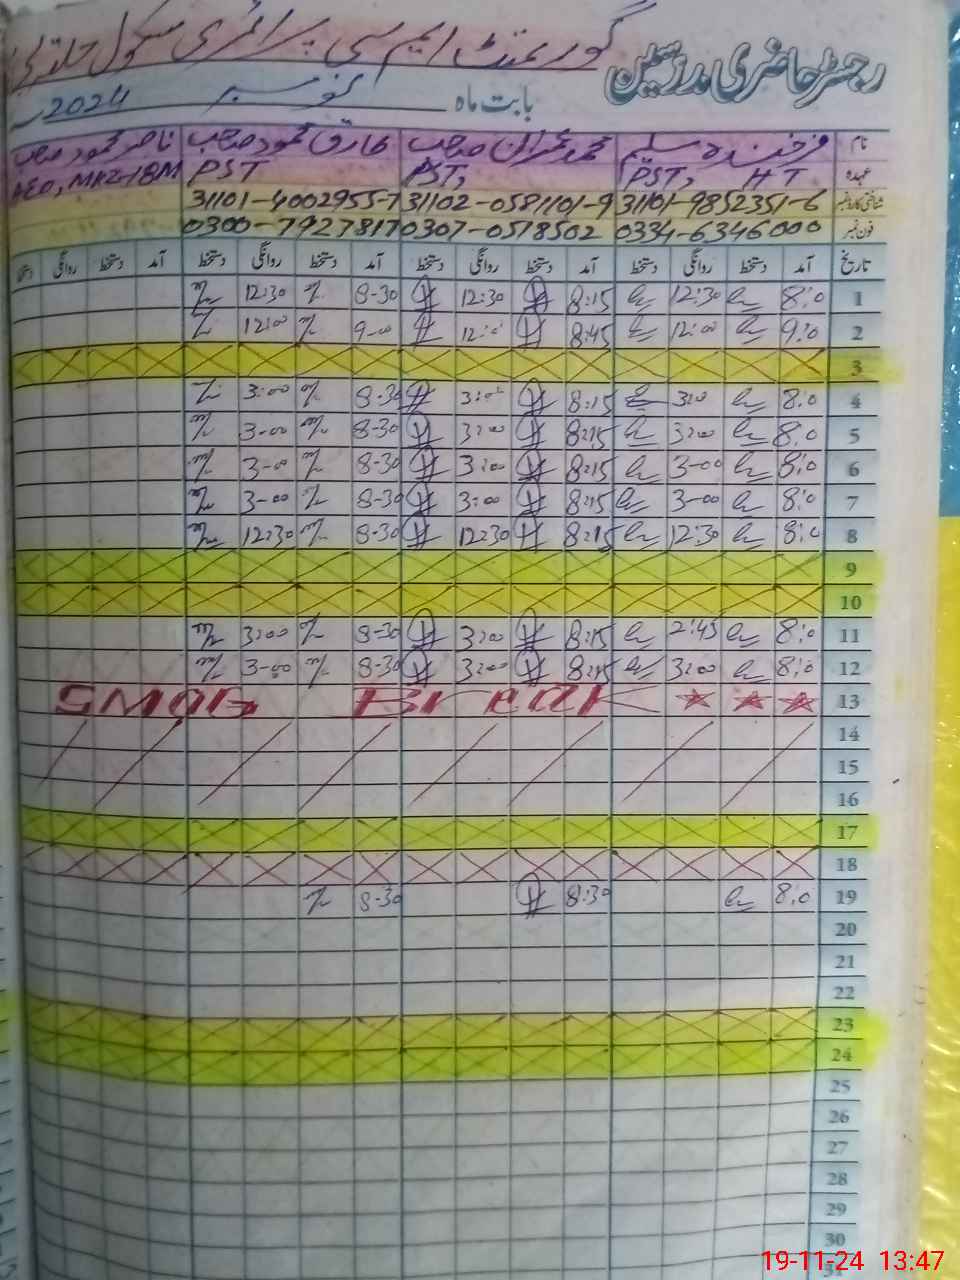 رجسٹر حاضری مدرسین گورنمنٹ ایم سی پرائمری سکول
بابت ماہ نومبر 2024
نام فرخندہ سلیم محمد عمران صاحب طارق محمود صاحب ناصر محمود صاحب
عہدہ PST, HT PST, PST AEO, MKZ-IBM
شناختی کارڈ نمبر 31101-9852351-6 31102-0581101-9 31101-4002955-7
فون نمبر 0334-6346000 0307-0518502 0300-7927817
تاریخ آمد دستخط روانگی دستخط آمد دستخط روانگی دستخط آمد دستخط روانگی دستخط آمد دستخط روانگی دستخط
1 8:0 12:30 8:15 12:30 8-30 12:30
2 9:0 12:00 8:45 12:0 9-00 12:00
3
4 8:0 3:0 8:15 3:00 8-30 3:00
5 8:0 3:00 8:15 3:00 8-30 3-00
6 8:0 3-00 8:15 3:00 8-30 3-00
7 8:0 3-00 8:15 3:00 8-30 3-00
8 8:0 12:30 8:15 12:30 8-30 12:30
9
10
11 8:0 2:45 8:15 3:00 8-30 3:00
12 8:0 3:00 8:15 3:00 8-30 3-00
13 SMOG Break
14
15
16
17
18
19 8:0 8:30 8-30
20
21
22
23
24
25
26
27
28
29
30
31
19-11-24 13:47